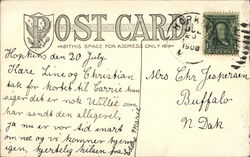 POST CARD
THIS SPACE FOR ADDRESS ONLY
HOPK
1908
Hopkins den 20 July
Kare Line og Christian
tak for kortet til Carrie kan
siger det er nok Willie om
har sendt den alligevel,
ja nu er vor tid snart
om og vi kommer hjem
igen, hjertelig hilsen fra
Mrs Chr Jespersen
Buffalo
N. Dak